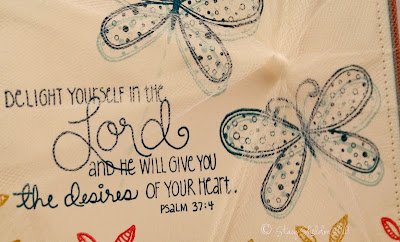 DELIGHT YOURSELF IN the
Lord
AND HE WILL GIVE YOU
the desires OF YOUR HEART.
PSALM 37:4